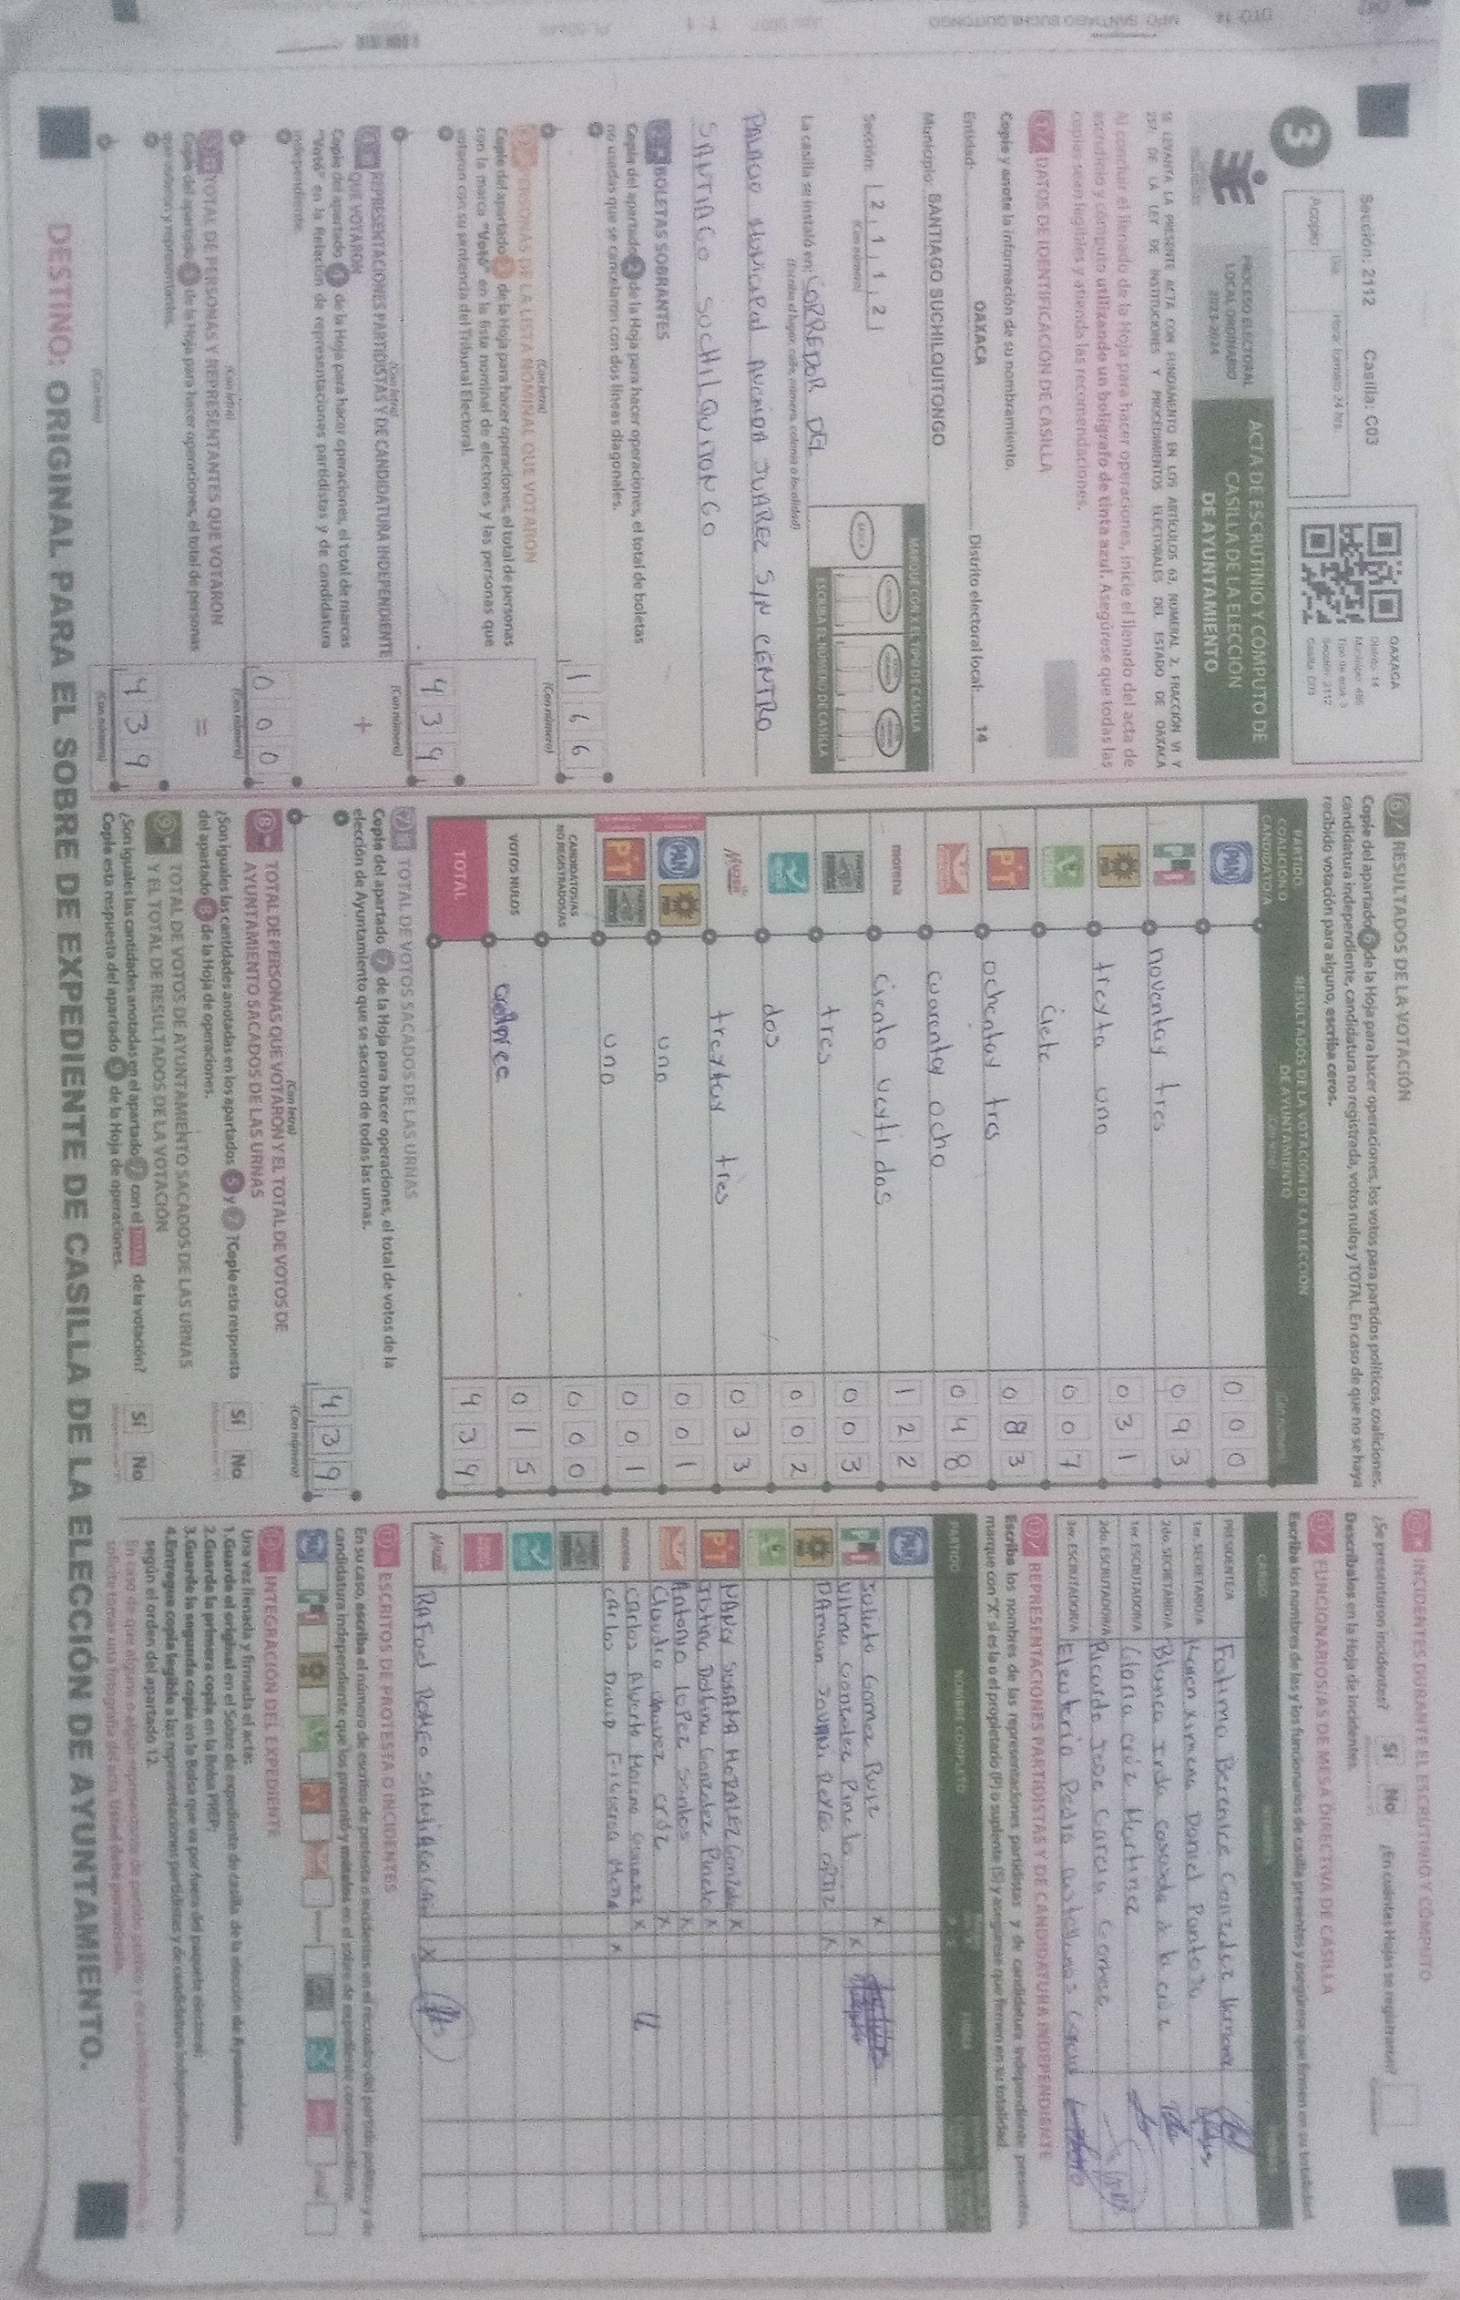 Sección: 2112 Casilla: C03
OAXACA
Distrito: 14
Tipo de acta: 3
Sección: 2112
Casilla: C03
3
Acopio:
Día
Hora: formato 24 hrs.
PROCESO ELECTORAL
LOCAL ORDINARIO
2023-2024
ACTA DE ESCRUTINIO Y CÓMPUTO DE
CASILLA DE LA ELECCIÓN
DE AYUNTAMIENTO
SE LEVANTA LA PRESENTE ACTA CON FUNDAMENTO EN LOS ARTÍCULOS 63, NUMERAL 2, FRACCIÓN VI Y
257, DE LA LEY DE INSTITUCIONES Y PROCEDIMIENTOS ELECTORALES DEL ESTADO DE OAXACA
Al concluir el llenado de la Hoja para hacer operaciones, inicie el llenado del acta de
escrutinio y cómputo utilizando un bolígrafo de tinta azul. Asegúrese que todas las
copias sean legibles y atienda las recomendaciones.
DATOS DE IDENTIFICACIÓN DE CASILLA
Copie y anote la información de su nombramiento.
Entidad: OAXACA Distrito electoral local: 14
Municipio: SANTIAGO SUCHILQUITONGO
Sección: 2 1 1 2
(Con número)
MARQUE CON X EL TIPO DE CASILLA
ESCRIBA EL NÚMERO DE CASILLA
La casilla se instaló en: CORREDOR DEL
(Escriba el lugar, calle, número, colonia o localidad)
PALACIO MUNICIPAL AVENIDA JUAREZ S/N CENTRO
SANTIAGO SUCHILQUITONGO
BOLETAS SOBRANTES
Copie del apartado 2 de la Hoja para hacer operaciones, el total de boletas
no usadas que se cancelaron con dos líneas diagonales.
1 6 6
(Con letra) (Con número)
PERSONAS DE LA LISTA NOMINAL QUE VOTARON
Copie del apartado 3 de la Hoja para hacer operaciones, el total de personas
con la marca "Votó" en la lista nominal de electores y las personas que
votaron con su sentencia del Tribunal Electoral.
4 3 9
(Con letra) (Con número)
REPRESENTACIONES PARTIDISTAS Y DE CANDIDATURA INDEPENDIENTE
QUE VOTARON
Copie del apartado 4 de la Hoja para hacer operaciones, el total de marcas
"Votó" en la Relación de representaciones partidistas y de candidatura
independiente.
+
0 0 0
(Con letra) (Con número)
TOTAL DE PERSONAS Y REPRESENTANTES QUE VOTARON
Copie del apartado 5 de la Hoja para hacer operaciones, el total de personas
que votaron y representantes.
=
4 3 9
(Con letra) (Con número)
6 RESULTADOS DE LA VOTACIÓN
Copie del apartado 6 de la Hoja para hacer operaciones, los votos para partidos políticos, coaliciones,
candidatura independiente, candidatura no registrada, votos nulos y TOTAL. En caso de que no se haya
recibido votación para alguno, escriba ceros.
PARTIDO,
COALICIÓN O
CANDIDATO/A
RESULTADOS DE LA VOTACIÓN DE LA ELECCIÓN
DE AYUNTAMIENTO
PAN 0 0 0
PRI noventay tres 0 9 3
PRD treyta uno 0 3 1
ciete 0 0 7
PT ochentay tres 0 8 3
cuarentay ocho 0 4 8
morena ciento veyti dos 1 2 2
tres 0 0 3
dos 0 0 2
treytay tres 0 3 3
PAN PRD uno 0 0 1
PT uno 0 0 1
CANDIDATOS/AS
NO REGISTRADOS/AS 0 0 0
VOTOS NULOS 0 1 5
TOTAL 4 3 9
7 TOTAL DE VOTOS SACADOS DE LAS URNAS
Copie del apartado 7 de la Hoja para hacer operaciones, el total de votos de la
elección de Ayuntamiento que se sacaron de todas las urnas.
4 3 9
(Con letra) (Con número)
8 TOTAL DE PERSONAS QUE VOTARON Y EL TOTAL DE VOTOS DE
AYUNTAMIENTO SACADOS DE LAS URNAS
¿Son iguales las cantidades anotadas en los apartados 5 y 7? Copie esta respuesta
del apartado 8 de la Hoja de operaciones.
Sí No
9 TOTAL DE VOTOS DE AYUNTAMIENTO SACADOS DE LAS URNAS
Y EL TOTAL DE RESULTADOS DE LA VOTACIÓN
¿Son iguales las cantidades anotadas en el apartado 7 con el TOTAL de la votación?
Copie esta respuesta del apartado 9 de la Hoja de operaciones.
Sí No
INCIDENTES DURANTE EL ESCRUTINIO Y CÓMPUTO
¿Se presentaron incidentes? Sí No ¿En cuántas Hojas se registraron?
Descríbalos en la Hoja de incidentes.
FUNCIONARIOS/AS DE MESA DIRECTIVA DE CASILLA
Escriba los nombres de las y los funcionarios de casilla presentes y asegúrese que firmen en su totalidad
CARGO
PRESIDENTE/A Fatima Berenice Gonzalez
1er. SECRETARIO/A Karen Ximena Daniel Pantoja
2do. SECRETARIO/A Blanca Irda
1er. ESCRUTADOR/A Gloria cruz Martinez
2do. ESCRUTADOR/A Ricardo Jose Garcia Gomez
3er. ESCRUTADOR/A Eleuterio Pedro
REPRESENTACIONES PARTIDISTAS Y DE CANDIDATURA INDEPENDIENTE
Escriba los nombres de las representaciones partidistas y de candidatura independiente presentes,
marque con "X" si es la o el propietario (P) o suplente (S) y asegúrese que firmen en su totalidad
PARTIDO NOMBRE COMPLETO FIRMA
PAN
Julieta Gomez Ruiz X
Vilma Gonzalez Pinelo X
DAmian JOVANI Reyes ORTIZ X
PT NANCY SUSANA MORALEZ Gonzalez X
Justina Delfina Gonzalez Pinelo X
Antonio lopez santos X
Claudia cruz X
morena Carlos Alberto Moreno X
carlos DAVID FIGUEROA MENA X
RAFael ROMEO SANTIAGO X
ESCRITOS DE PROTESTA O INCIDENTES
En su caso, escriba el número de escritos de protesta o incidentes en el recuadro del partido político y de
candidatura independiente que los presentó y métalos en el sobre de expediente correspondiente.
INTEGRACIÓN DEL EXPEDIENTE
Una vez llenada y firmada el acta:
1.Guarde el original en el Sobre de expediente de casilla de la elección de Ayuntamiento;
2.Guarde la primera copia en la Bolsa PREP;
3.Guarde la segunda copia en la Bolsa que va por fuera del paquete electoral;
4.Entregue copia legible a las representaciones partidistas y de candidatura independiente presentes,
según el orden del apartado 12.
DESTINO: ORIGINAL PARA EL SOBRE DE EXPEDIENTE DE CASILLA DE LA ELECCIÓN DE AYUNTAMIENTO.